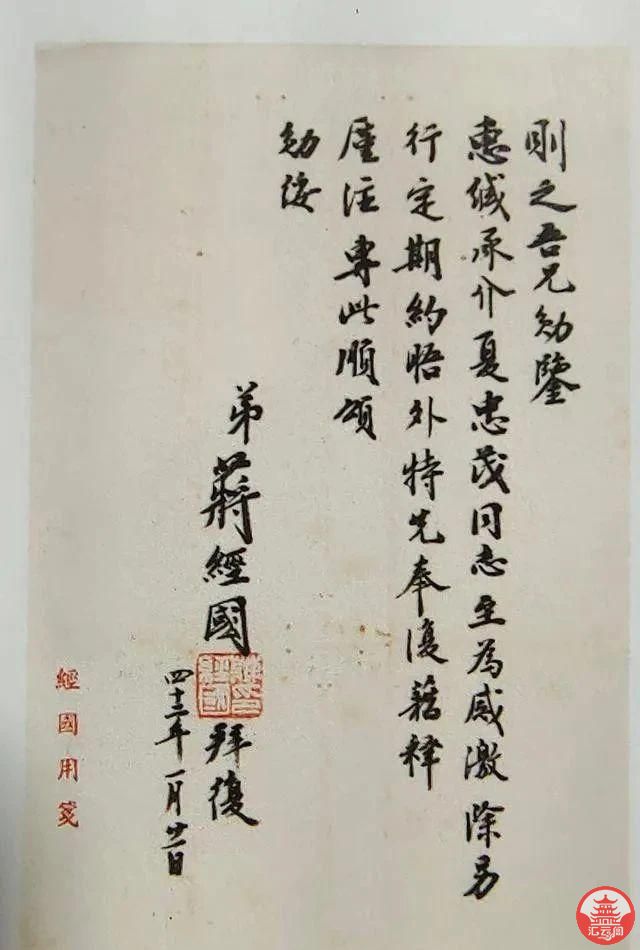 則之吾兄勛鑒
惠緘承介夏惠茂同志至為感激除另
行定期約晤外特先奉復藉釋
廑注專此順頌
勛綏
弟蔣經國拜復
四十三年一月廿一日
經國用箋
汇云阁